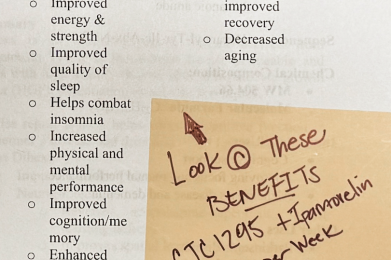 ○ Improved
energy &
strength
○ Improved
quality of
sleep
○ Helps combat
insomnia
○ Increased
physical and
mental
performance
○ Improved
cognition/me
mory
○ Enhanced
improved
recovery
○ Decreased
aging
Look @ These
BENEFITS
CJC1295 + Ipamorelin
per Week